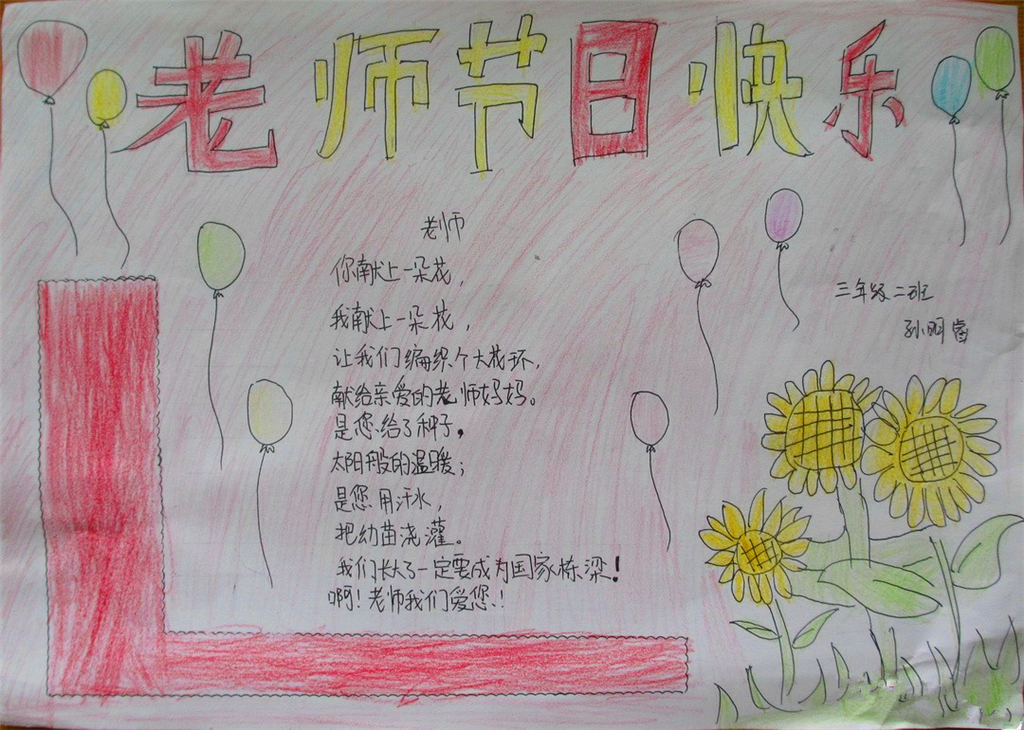 老师节日快乐
老师
你献上一朵花，
我献上一朵花，
让我们编织个大花环，
献给亲爱的老师妈妈。
是您给了种子，
太阳般的温暖；
是您用汗水，
把幼苗浇灌。
我们长大了一定要成为国家栋梁！
啊！老师我们爱您！
三年级二班
孙明睿